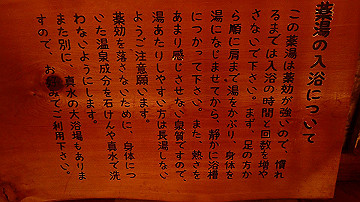 薬湯の入浴について
この薬湯は薬効が強いので、慣れ
るまでは入浴の時間と回数を増や
さないで下さい。まず、足の方か
ら順に肩まで湯をかぶり、身体を
湯になじませてから、静かに浴槽
につかって下さい。また、熱さを
あまり感じさせない泉質ですので、
湯あたりしやすい方は長湯しない
ようご注意願います。
薬効を落さないために、身体につ
いた温泉成分を石けんや真水で洗
わないようにします。
また別に、真水の大浴場もありま
すので、お好みでご利用下さい。